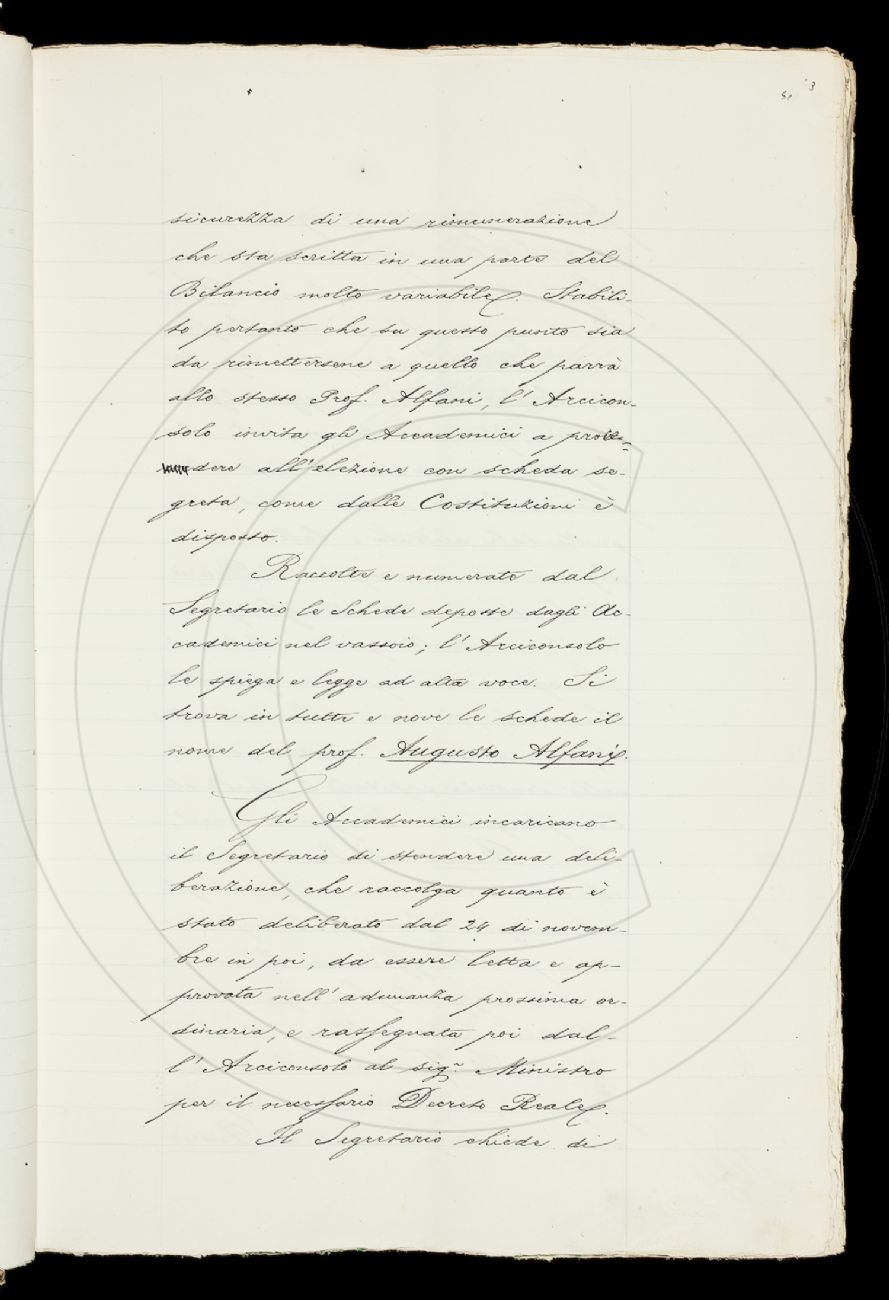 sicurezza di una rimunerazione
che sta scritta in una parte del
Bilancio molto variabile. Stabili-
to pertanto che su questo punto sia
da rimettersene a quello che parrà
allo stesso Prof. Alfani, l'Arcicon-
solo invita gli Accademici a proce-
dere all'elezione con scheda se-
greta, come dalle Costituzioni è
disposto.
Raccolte e numerate dal
Segretario le Schede deposte dagli Ac-
cademici nel vassoio; l'Arciconsolo
le spiega e legge ad alta voce. Si
trova in tutte e nove le schede il
nome del prof. Augusto Alfani.
Gli Accademici incaricano
il Segretario di stendere una deli-
berazione, che raccolga quanto è
stato deliberato dal 24 di novem-
bre in poi, da essere letta e ap-
provata nell'adunanza prossima or-
dinaria, e rassegnata poi dal-
l'Arciconsolo al sigr. Ministro
per il necessario Decreto Reale.
Il Segretario chiede di